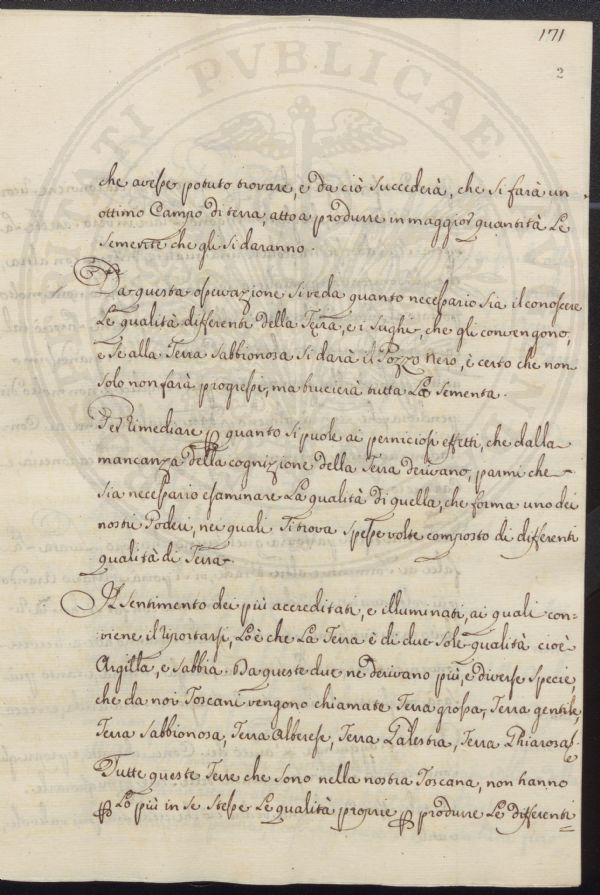 171
2
PVBLICAE
che avesse potuto trovare, e da ciò succederà, che si farà un
ottimo Campo di terra, atto a produrre in maggior quantità Le
semente che gli si daranno.
Da questa operazione si veda quanto necessario sia il conoscere
Le qualità differenti della Terra, e i sughi, che gli convengono,
e se alla Terra sabbionosa si darà il Pozzo Nero, è certo che non
solo non farà progressi, ma brucierà tutta La sementa.
Per rimediare ꝑ quanto si puole ai perniciosi effetti, che dalla
mancanza della cognizione della Terra derivano, parmi che
sia necessario esaminare La qualità di quella, che forma uno dei
nostri Poderi, nei quali si trova spesse volte composto di differenti
qualità di Terra.
Il sentimento dei più accreditati, e illuminati, ai quali con-
viene il riportarsi, Lo è che La Terra è di due sole qualità cioè
Argilla, e sabbia. Da queste due ne derivano più, e diverse specie,
che da noi Toscani vengono chiamate Terra grossa, Terra gentile,
Terra sabbionosa, Terra Alberese, Terra Galestra, Terra Ghiarosa
Tutte queste Terre che sono nella nostra Toscana, non hanno
ꝑ Lo più in se stesse Le qualità proprie ꝑ produrre Le differenti=